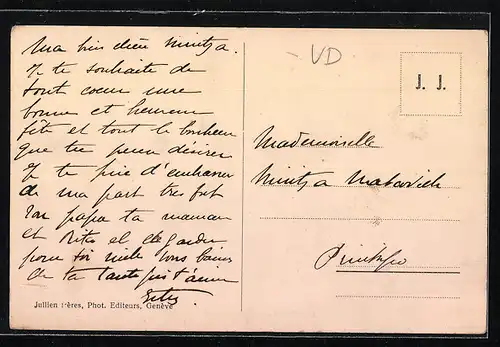 Ma bien chère Mintza.
Je te souhaite de
tout coeur une
bonne et heureuse
fête et tout le bonheur
que tu peux désirer
Je te prie d'embrasser
de ma part très fort
ton papa ta maman
et Rita et
pour toi mille bons baisers
de ta tante qui t'aime
VD
J. J.
Mademoiselle
Mintza
Prinkipo
Jullien frères, Phot. Editeurs, Genève